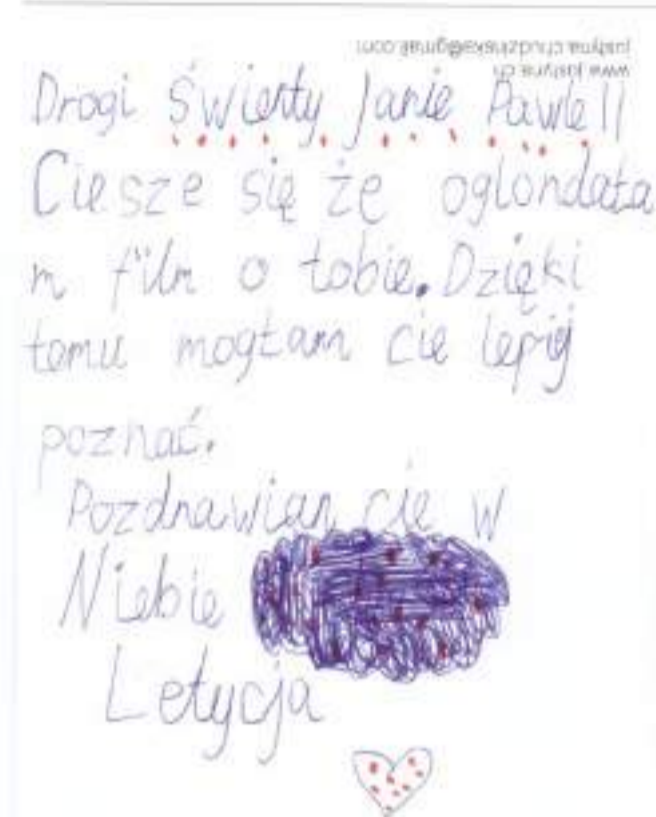 justyna.chudzinska@gmail.com
www.justyna.ch
Drogi Świenty Janie Pawle II
Ciesze się że oglondała
m film o tobie. Dzięki
temu mogłam cie lepiej
poznać.
Pozdrawiam cie w
Niebie
Letycja